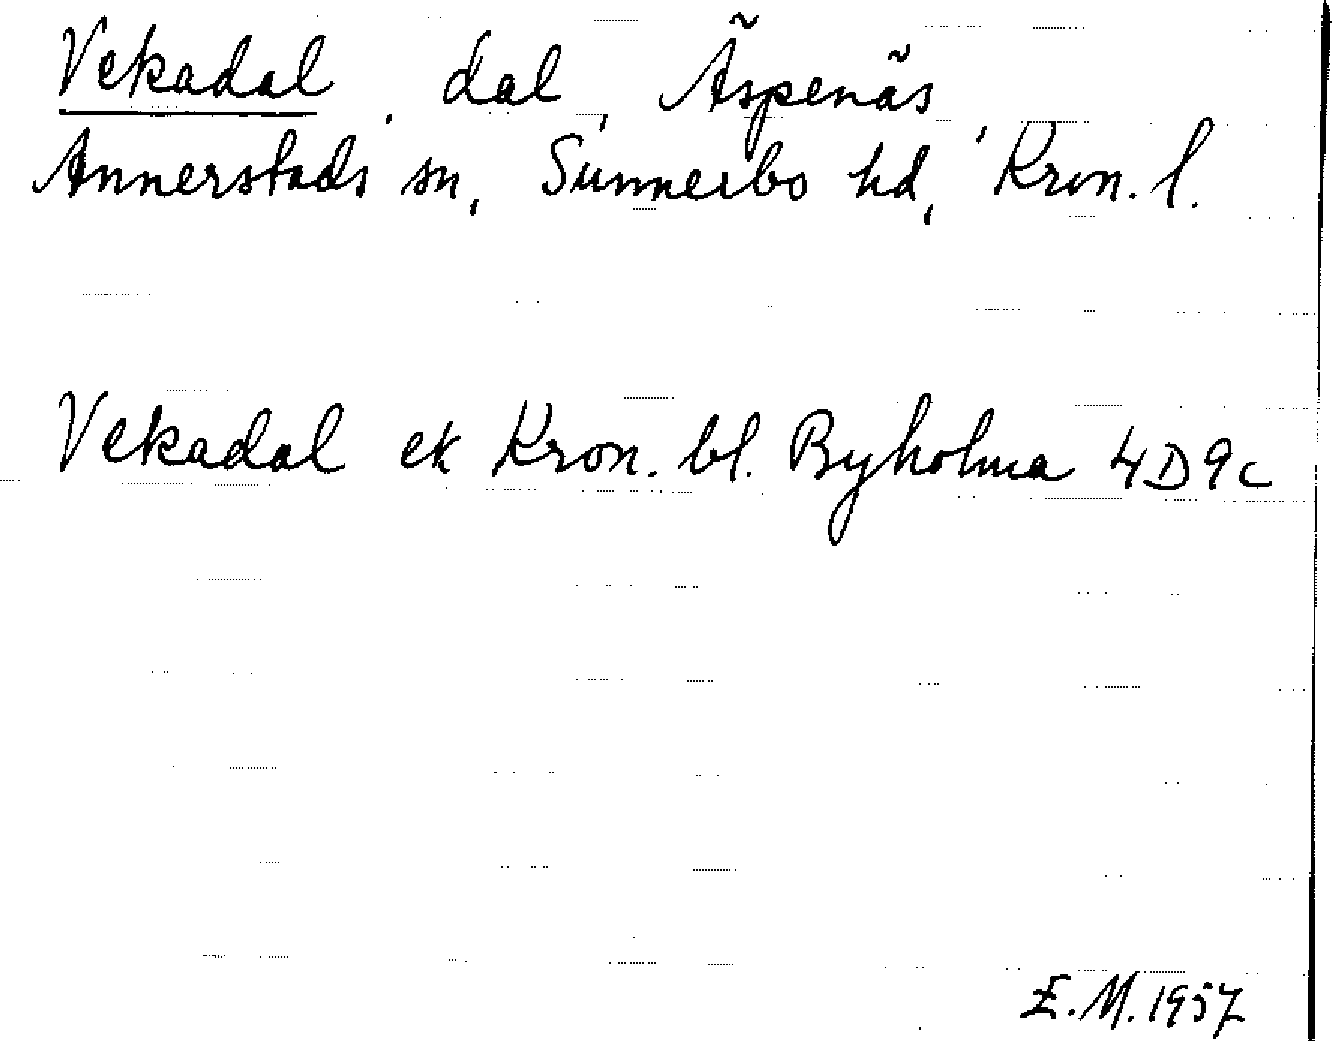 Vekadal, dal, Äspenäs,
Annerstads sn, Sunnerbo hd, Kron. l.
Vekadal ek Kron. bl. Byholma 4D9c
E.M. 1957